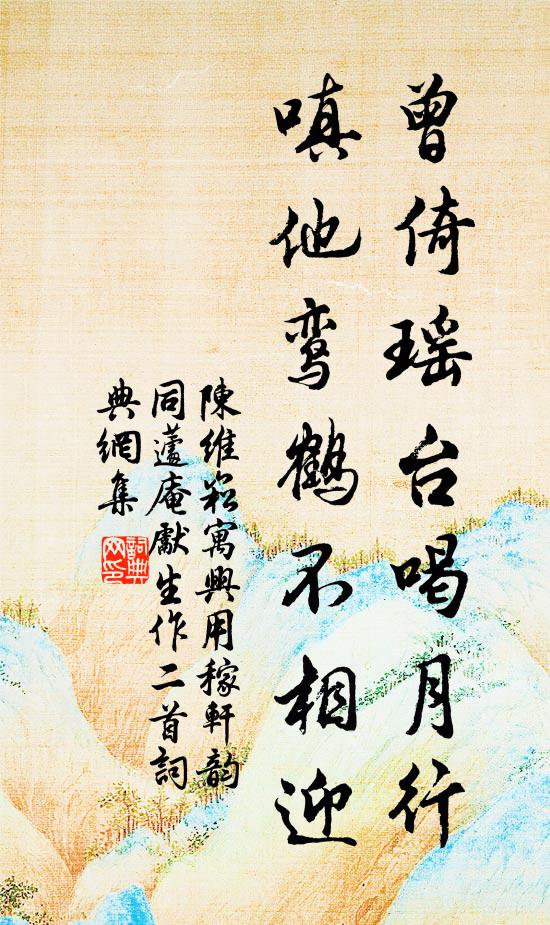 曾倚瑶台喝月行
嗔他鸾鶴不相迎
陳維崧寓興用稼軒韵
同蘧庵獻生作二首詞
典網集
詞典
网印